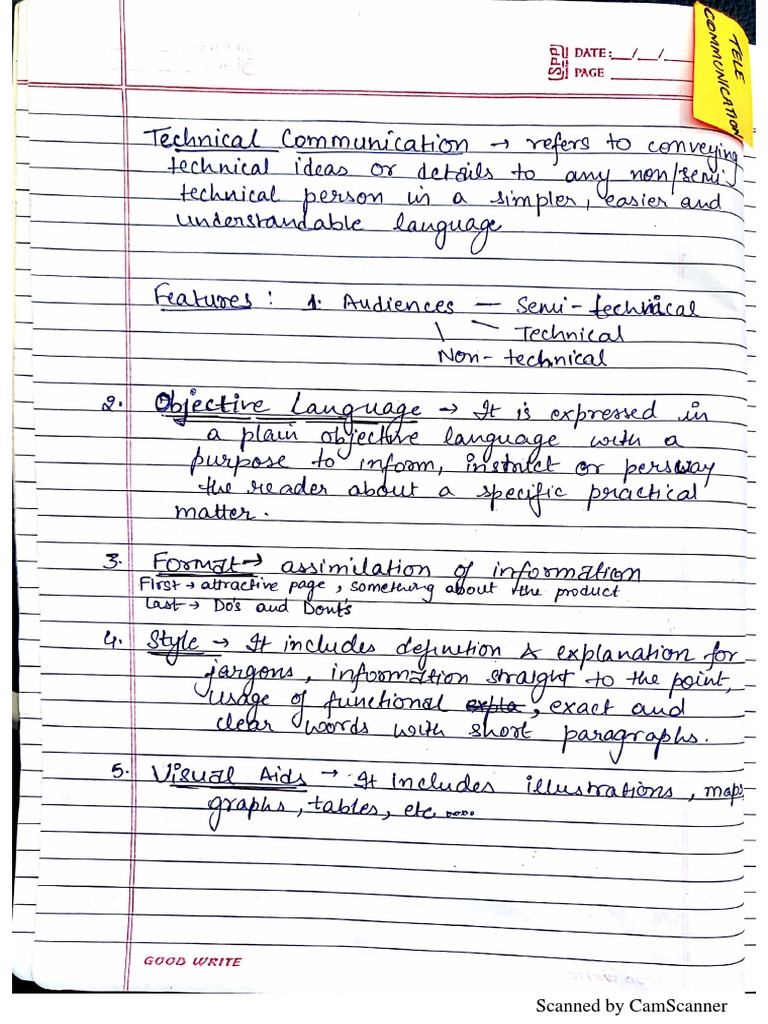 TELE
COMMUNICATION
SPP DATE: __/__/__
PAGE
Technical Communication → refers to conveying
technical ideas or details to any non/semi
technical person in a simpler, easier and
understandable language
Features : 1. Audiences — Semi-technical
\ — Technical
Non-technical
2. Objective Language → It is expressed in
a plain objective language with a
purpose to inform, instruct or persuay
the reader about a specific practical
matter.
3. Format → assimilation of information
First → attractive page, something about the product
Last → Do's and Dont's
4. Style → It includes definition & explanation for
jargons, information straight to the point,
usage of functional expla, exact and
clear words with short paragraphs.
5. Visual Aids → It includes illustrations, maps
graphs, tables, etc....
GOOD WRITE
Scanned by CamScanner